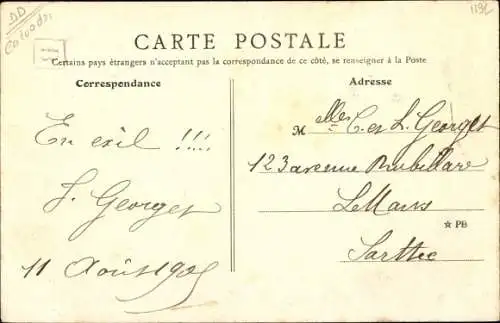 DD
Calvados
1192
CARTE POSTALE
Certains pays étrangers n'acceptant pas la correspondance de ce côté, se renseigner à la Poste
Correspondance
En exil !!!!
J. Georget
11 Août 1905
Adresse
M elles C. et L. Georget
123 avenue Rubillard
Le Mans
☆ PB
Sarthe